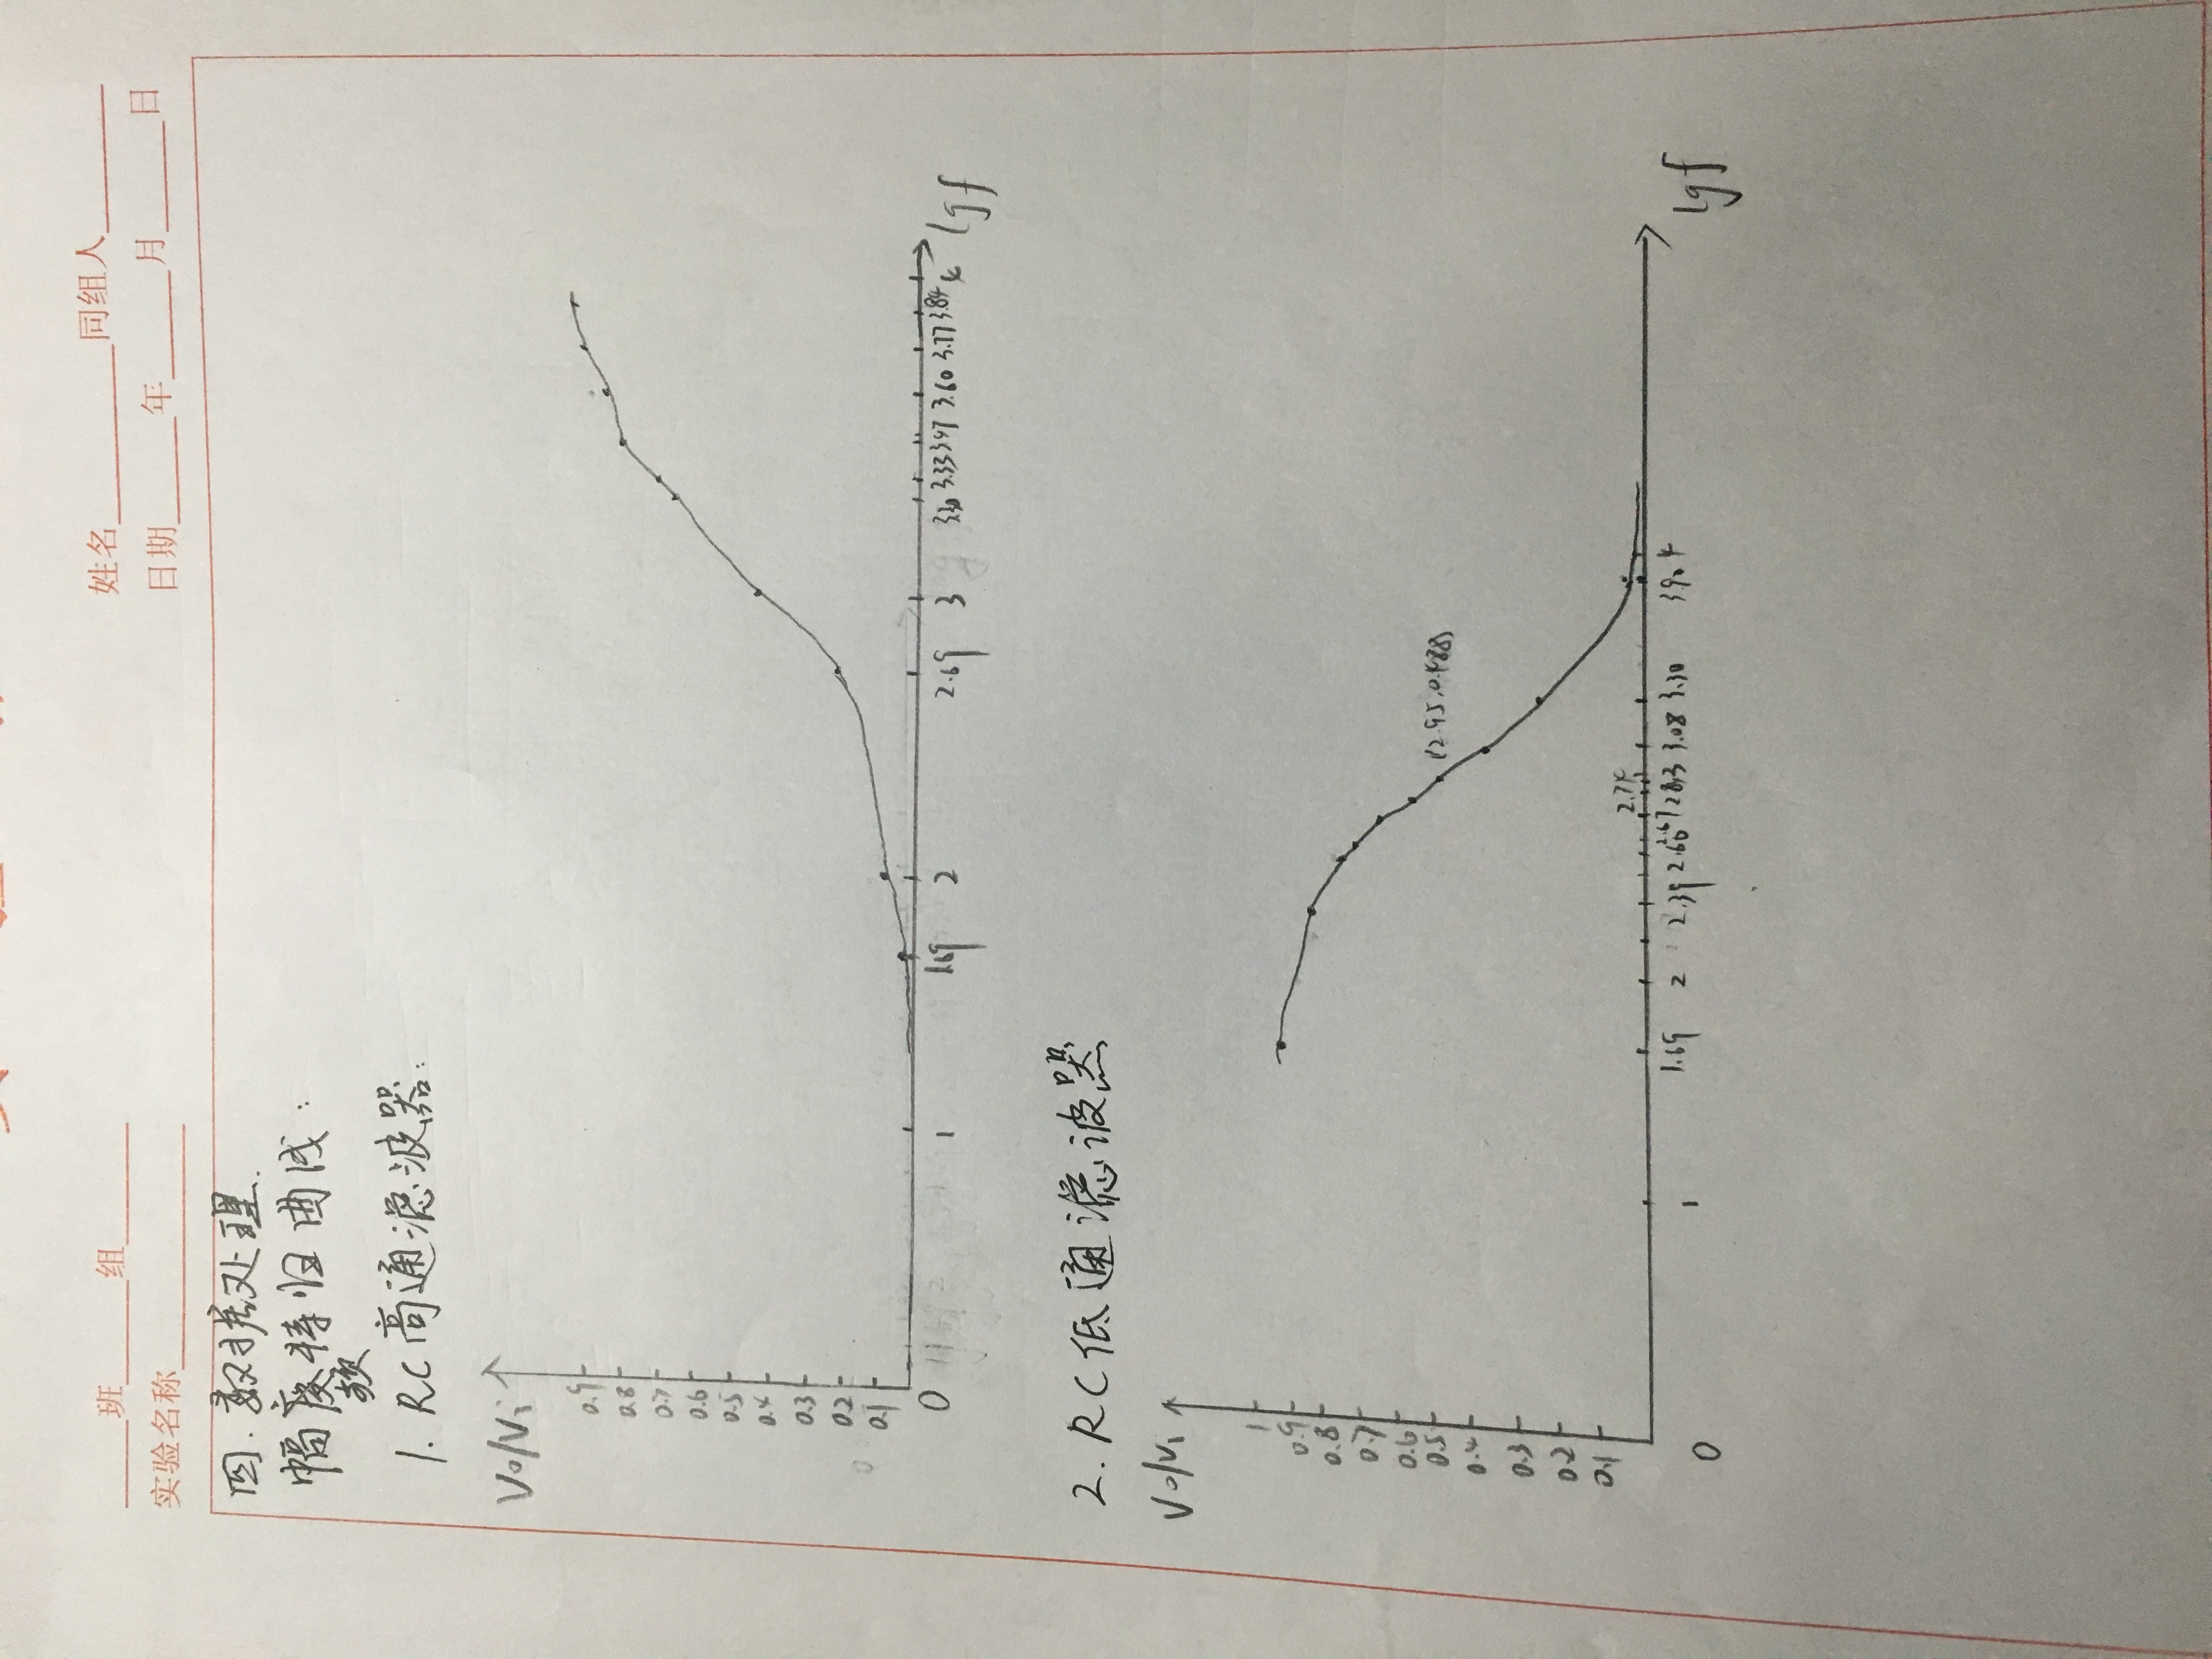 班 组
姓名 同组人
实验名称
日期 年 月 日
四. 数据处理.
幅度特性曲线:
频
1. RC高通滤波器:
Vo/Vi
0.9
0.8
0.7
0.6
0.5
0.4
0.3
0.2
0.1
0 1 1.69 2 2.69 3 3.30 3.33 3.47 3.60 3.77 3.84 4 lgf
2. RC低通滤波器
Vo/Vi
1
0.9
0.8
0.7
0.6
0.5
(2.95,0.488)
0.4
0.3
0.2
0.1
2.74
0 1 1.69 2 2.39 2.60 3.08 3.30 3.90 4 lgf